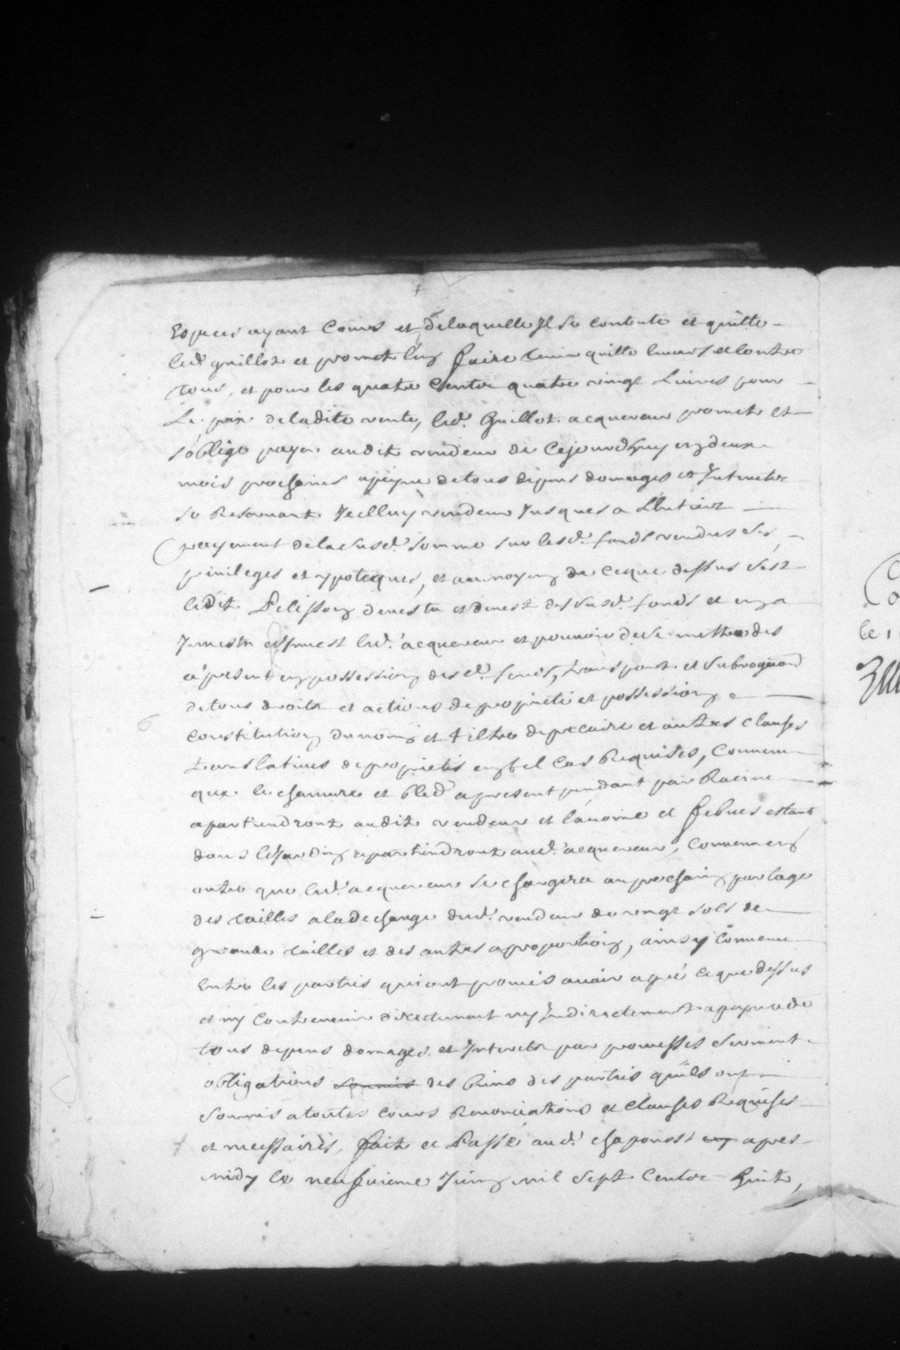 Especes ayant Cours et de laquelle Il se contente et quitte
led. guillot et promet luy faire tenir quitte envers et contre
tous, et pour les quatre Centz quatre vingt Livres pour
Le prix deladite vente, led. Guillot acquereur promet et
s'oblige payer audit vendeur de Cejourdhuy en deux
mois prochains apeyne detous depens domages et Interestz
se Reservant Icelluy vendeur Jusques a L'entier
payement dela susd. somme sur lesd. fonds vendus ses
privileges et ypoteques, et aumoyen de ceque dessus sest
ledit Pelisson demestu et devest des susd. fonds et en a
Jnvestu et Jnvest led. acquereur et pouvoir de se mettre des
a present en possession desd. fonds, transport et subrogation
detous droits et actions de proprieté et possession
constitution du nom et tiltre de precaire et autres clauses
translatives de proprieté en tel Cas Requises, Convenu
que le chanvre et bled apresent pendant par Racine
apartiendront audit vendeur et l'avoine et febves estant
dans le Jardin apartiendront aud. acquereur, Convenu en
outre que led. acquereur se chargera au prochain partage
des tailles ala decharge dud. vendeur de vingt sols de
grande tailles et des autres a proportion, ainsy Convenu
Entre les parties qui ont promis avoir agreé ceque dessus
et ny Contrevenir directement ny Indirectement apeyne de
tous depens domages et Interestz par promesses serment
obligations soumis des biens des parties quils ont
soumis atoutes cours Renonciations et clauses Requises
et necessaires, fait et Passé aud. chaponost apres
midy le neufvieme Juing mil sept Centz huit,